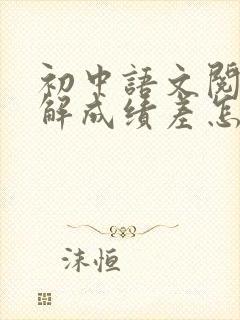 初中語文閱
解成績差怎
沫恒